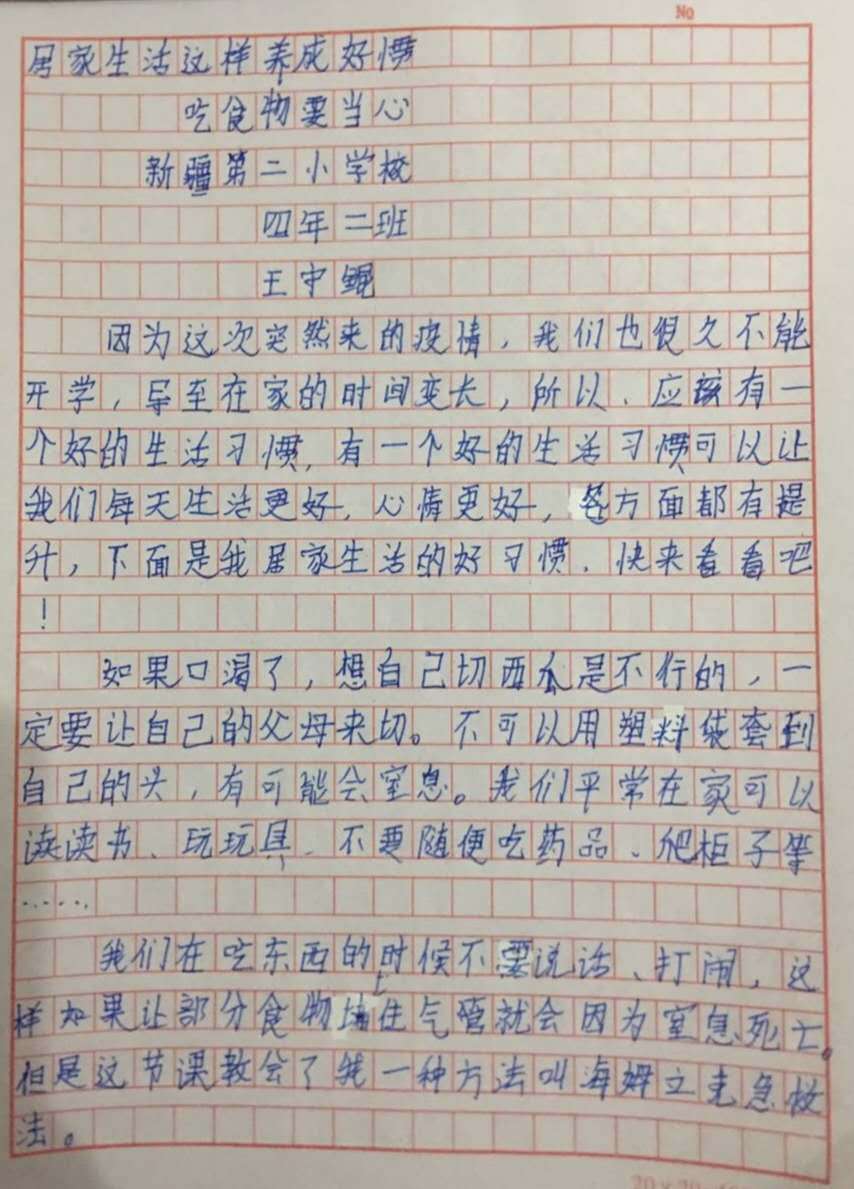 No
居家生活这样养成好惯
吃食物要当心
新疆第二小学校
四年二班
王守鲲
因为这次突然来的疫情，我们也很久不能
开学，导至在家的时间变长，所以、应该有一
个好的生活习惯，有一个好的生活习惯可以让
我们每天生活更好，心情更好，各方面都有提
升，下面是我居家生活的好习惯，快来看看吧
！
如果口渴了，想自己切西瓜是不行的，一
定要让自己的父母来切。不可以用塑料袋套到
自己的头，有可能会窒息。我们平常在家可以
读读书、玩玩具、不要随便吃药品、爬柜子等
……
我们在吃东西的时候不要说话、打闹，这
样如果让部分食物堵住气管就会因为窒息死亡。
但是这节课教会了我一种方法叫海姆立克急救
法。